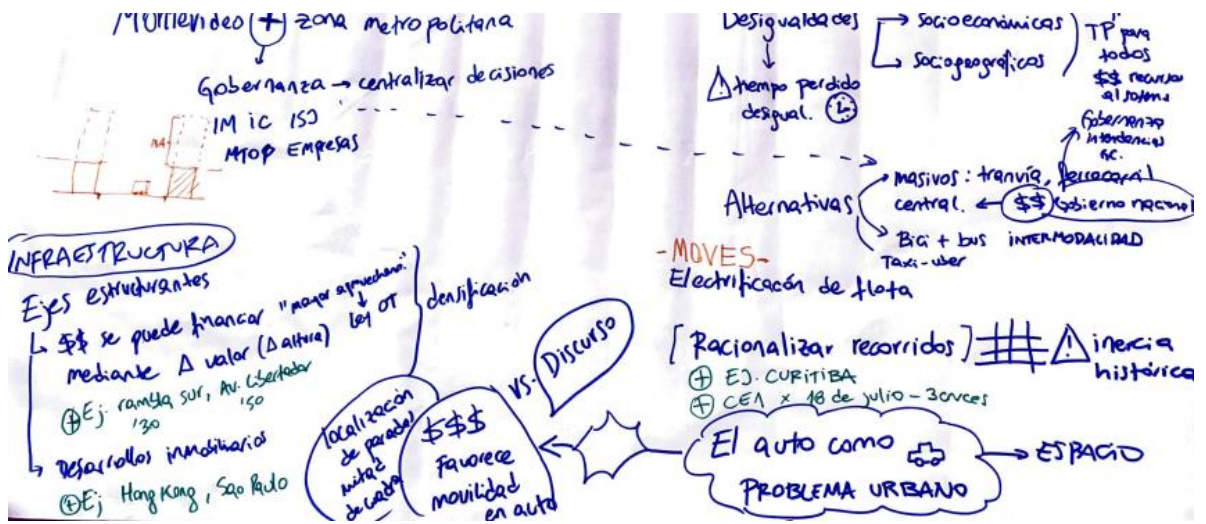 Montevideo + zona metropolitana
Gobernanza → centralizar decisiones
IM IC ISJ
MTOP Empresas
INFRAESTRUCTURA
Ejes estructurantes
$$ se puede financiar "mayor aprovecham."
mediante Δ valor (Δ altura) Ley OT
+ Ej. rambla sur, Av. Libertador
'30 '50
Desarrollos inmobiliarios
+ Ej. Hong Kong, Sao Paulo
densificación
localización
de paradas
mitad
de cuadra
$$$
Favorece
movilidad
en auto
VS.
Discurso
Desigualdades → socioeconómicas
→ sociogeográficas
tiempo perdido
desigual.
TP para
todos
$$ recursos
al sistema
Gobernanza
intendencias
GC.
Alternativas
masivos: tranvía, ferrocarril
central. ← $$ Gobierno nacional
Bici + bus INTERMODALIDAD
Taxi-uber
-MOVES-
Electrificacón de flota
[Racionalizar recorridos]
inercia
histórica
+ EJ. CURITIBA
+ CE1 x 18 de julio - 3cruces
El auto como
PROBLEMA URBANO
→ ESPACIO